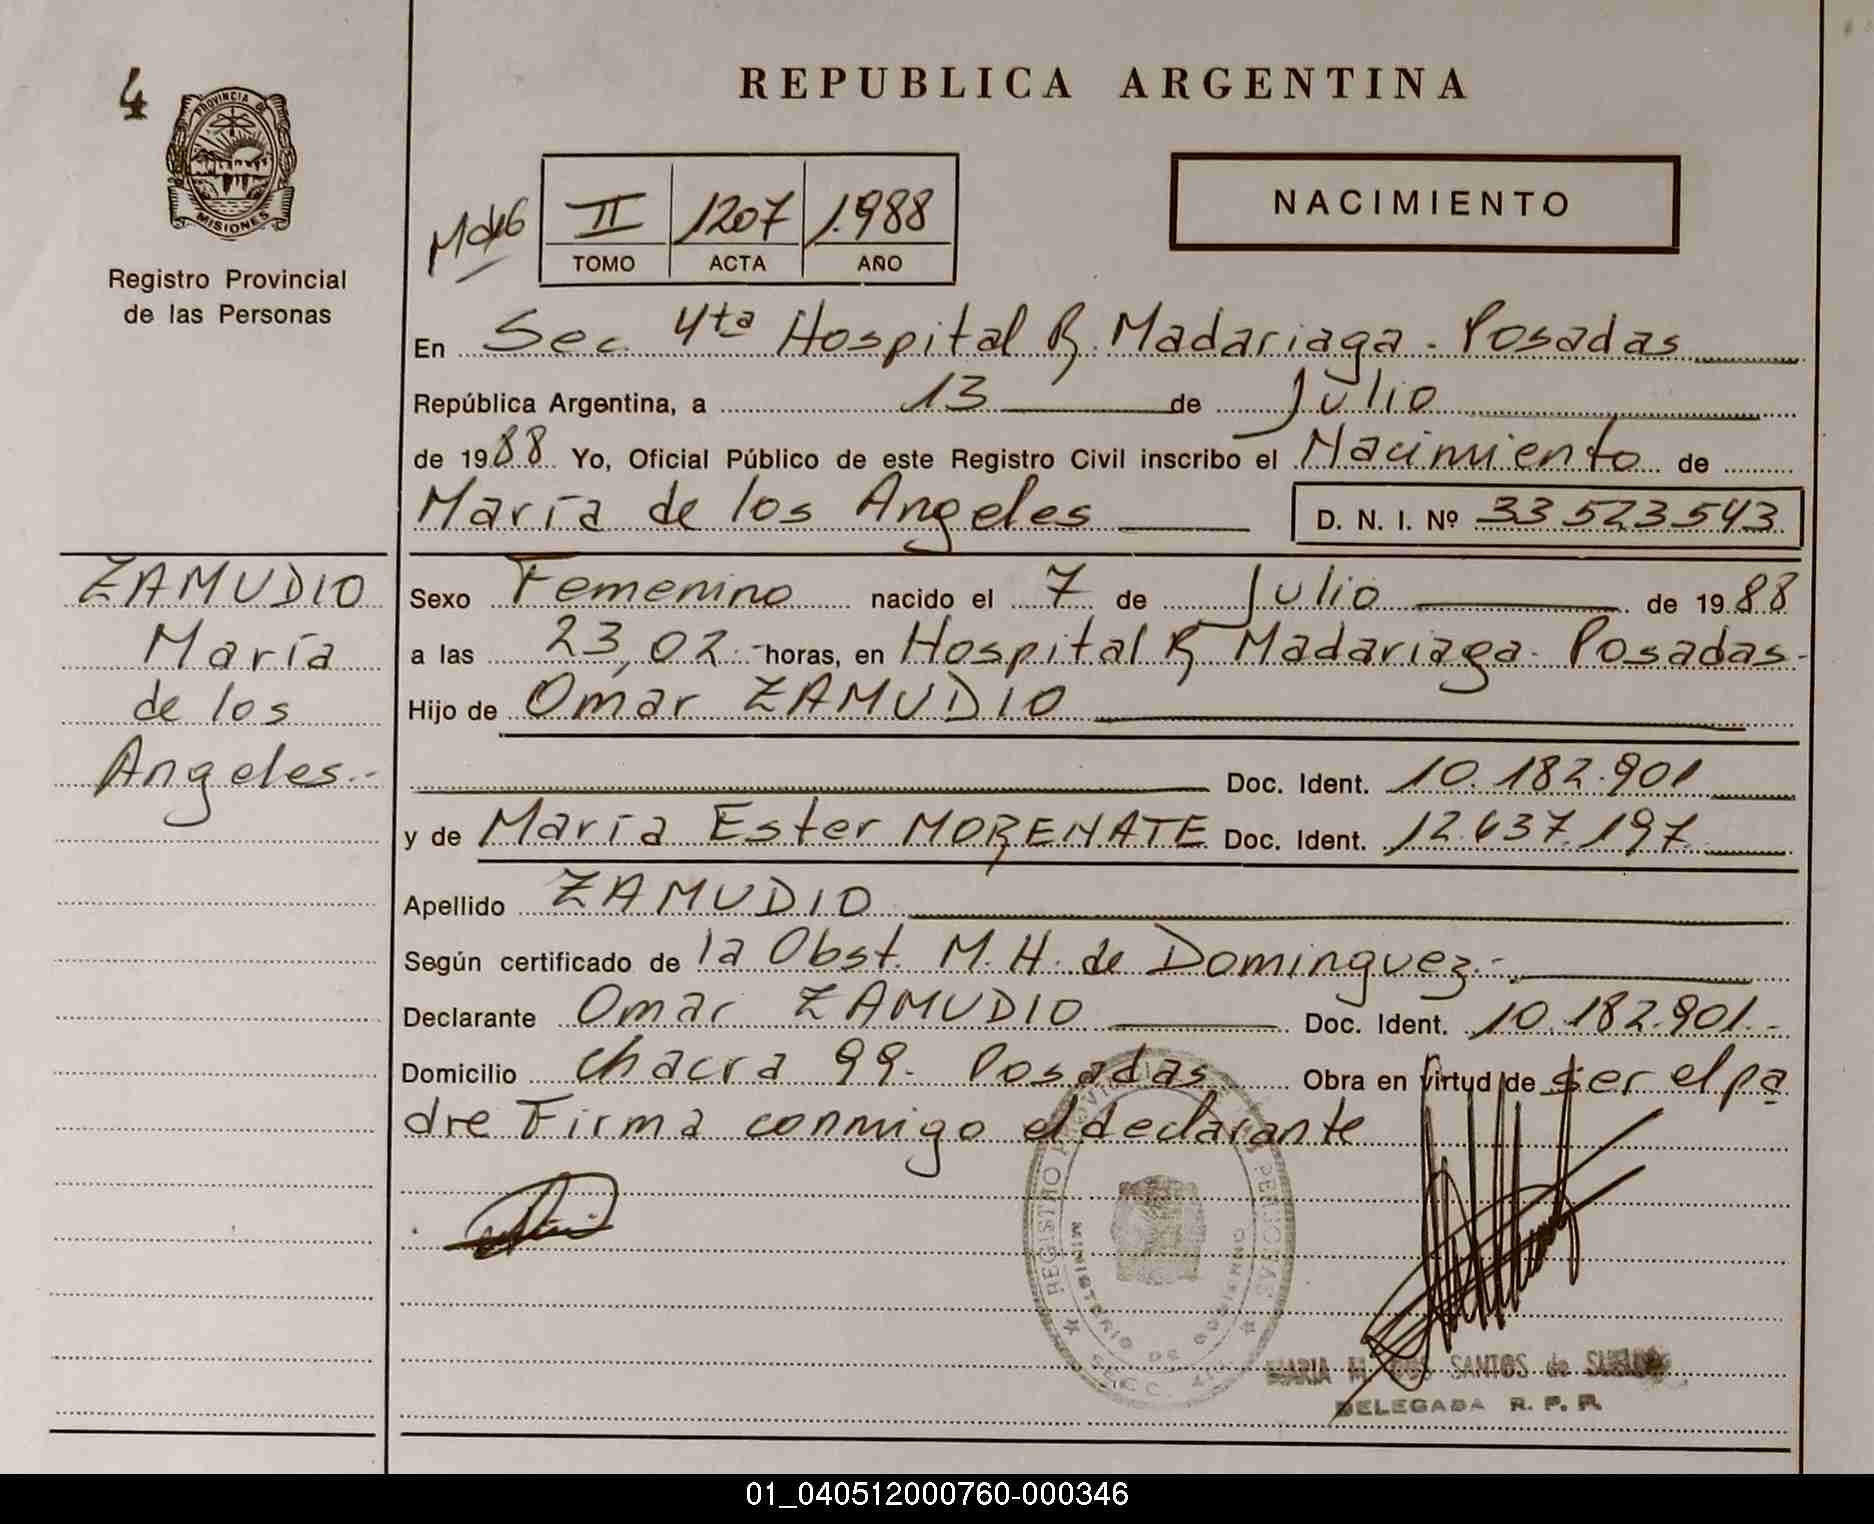 4
PROVINCIA DE
MISIONES
Registro Provincial
de las Personas
REPUBLICA ARGENTINA
II 1207 1.988
TOMO ACTA AÑO
NACIMIENTO
En Sec. 4ta Hospital R. Madariaga - Posadas
República Argentina, a 13 de Julio
de 1988 Yo, Oficial Público de este Registro Civil inscribo el Nacimiento de
María de los Angeles D. N. I. Nº 33.523.543
ZAMUDIO
María
de los
Angeles.-
Sexo Femenino nacido el 7 de Julio de 1988
a las 23,02.- horas, en Hospital R. Madariaga - Posadas.-
Hijo de Omar ZAMUDIO
Doc. Ident. 10.182.901
y de María Ester MORENATE Doc. Ident. 12.637.197
Apellido ZAMUDIO
Según certificado de la Obst. M. H. de Dominguez.-
Declarante Omar ZAMUDIO Doc. Ident. 10.182.901.-
Domicilio chacra 99.- Posadas Obra en virtud de ser el pa
dre Firma conmigo el declarante
REGISTRO PROVINCIAL DE LAS PERSONAS
MINISTERIO DE GOBIERNO
SECC. 4ta
MARIA M. DOS SANTOS de
DELEGADA R. P. P.
01_040512000760-000346